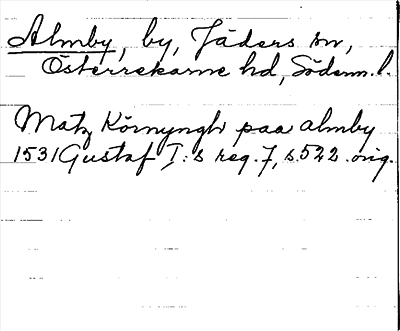 Almby, by, Jäders sn,
Österrekarne hd, Söderm. l.
Matz Környngh paa almby
1531 Gustaf I:s reg. 7, s. 522 orig.